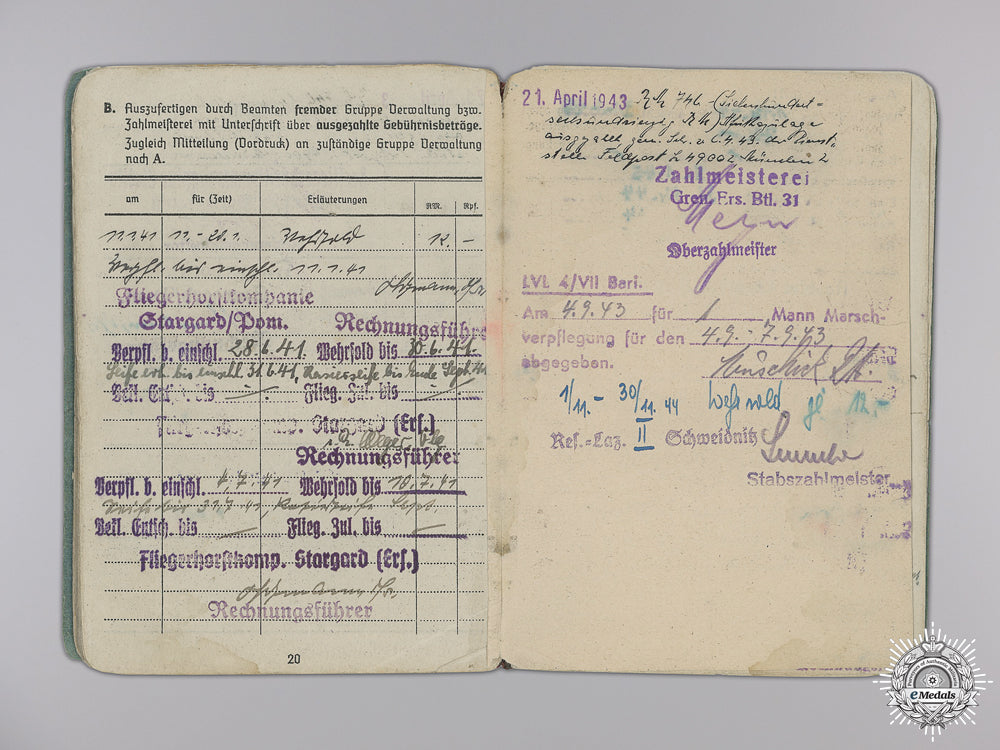 B. Auszufertigen durch Beamten fremder Gruppe Verwaltung bzw.
Zahlmeisterei mit Unterschrift über ausgezahlte Gebührnisbeträge.
Zugleich Mitteilung (Vordruck) an zuständige Gruppe Verwaltung
nach A.
am für (Zeit) Erläuterungen RM. Rpf.
11.1.41 11.-20.1. Wehrsold 12. –
Verpfl. bis einschl. 11.1.41
Fliegerhorstkompanie
Stargard/Pom. Rechnungsführer
Verpfl. b. einschl. 28.6.41. Wehrsold bis 30.6.41.
bis einschl. 31.6.41, Rasierseife bis Ende Sept. 41
Bekl. Entsch. bis Flieg. Zul. bis
Fliegerhorstkomp. Stargard (Ers.)
Rechnungsführer
Verpfl. b. einschl. 4.7.41 Wehrsold bis 10.7.41
Seife bis 31.7.41 Rasierseife Sept.
Bekl. Entsch. bis Flieg. Zul. bis
Fliegerhorstkomp. Stargard (Ers.)
Rechnungsführer
20
21. April 1943 RM 746.- (Siebenhundert=
sechsundvierzig RM)
ausgezahlt gem. v. 6.4.43. der Dienst=
stelle Feldpost L 49002 München 2
Zahlmeisterei
Gren. Ers. Btl. 31
Oberzahlmeister
LVL 4/VII Bari.
Am 4.9.43 für 1 Mann Marsch-
verpflegung für den 4.9.- 7.9.43
abgegeben.
1/11.- 30/11.44 Wehrsold 12.-
Res.-Laz. II Schweidnitz
Stabszahlmeister
eMedals